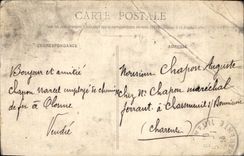 CARTE POSTALE
CORRESPONDANCE
ADRESSE
Bonjour et amitié
Chapon Marcel employé de chemin
de fer à Olonne
Vendée
Monsieur Chapon Auguste
chez Mr Chapon maréchal
ferrant à Chasseneuil
(Charente)